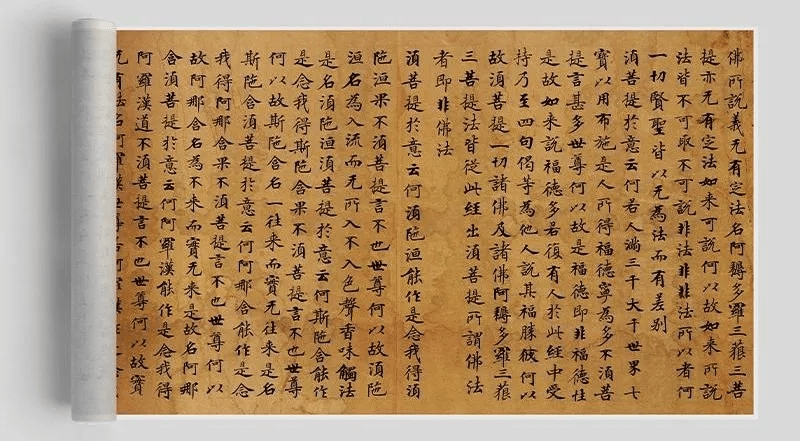 佛所說義无有定法名阿耨多羅三藐三菩
提亦无有定法如來可說何以故如來所說
法皆不可取不可說非法非非法所以者何
一切賢聖皆以无為法而有差別
須菩提於意云何若人滿三千大千世界七
寶以用布施是人所得福德寧為多不須菩
提言甚多世尊何以故是福德即非福德性
是故如來說福德多若復有人於此經中受
持乃至四句偈等為他人說其福勝彼何以
故須菩提一切諸佛及諸佛阿耨多羅三藐
三菩提法皆從此經出須菩提所謂佛法
者即非佛法
須菩提於意云何須陁洹能作是念我得須
陁洹果不須菩提言不也世尊何以故須陁
洹名為入流而无所入不入色聲香味觸法
是名須陁洹須菩提於意云何斯陁含能作
是念我得斯陁含果不須菩提言不也世尊
何以故斯陁含名一往來而實无往來是名
斯陁含須菩提於意云何阿那含能作是念
我得阿那含果不須菩提言不也世尊何以
故阿那含名為不來而實无來是故名阿那
含須菩提於意云何阿羅漢能作是念我得
阿羅漢道不須菩提言不也世尊何以故實